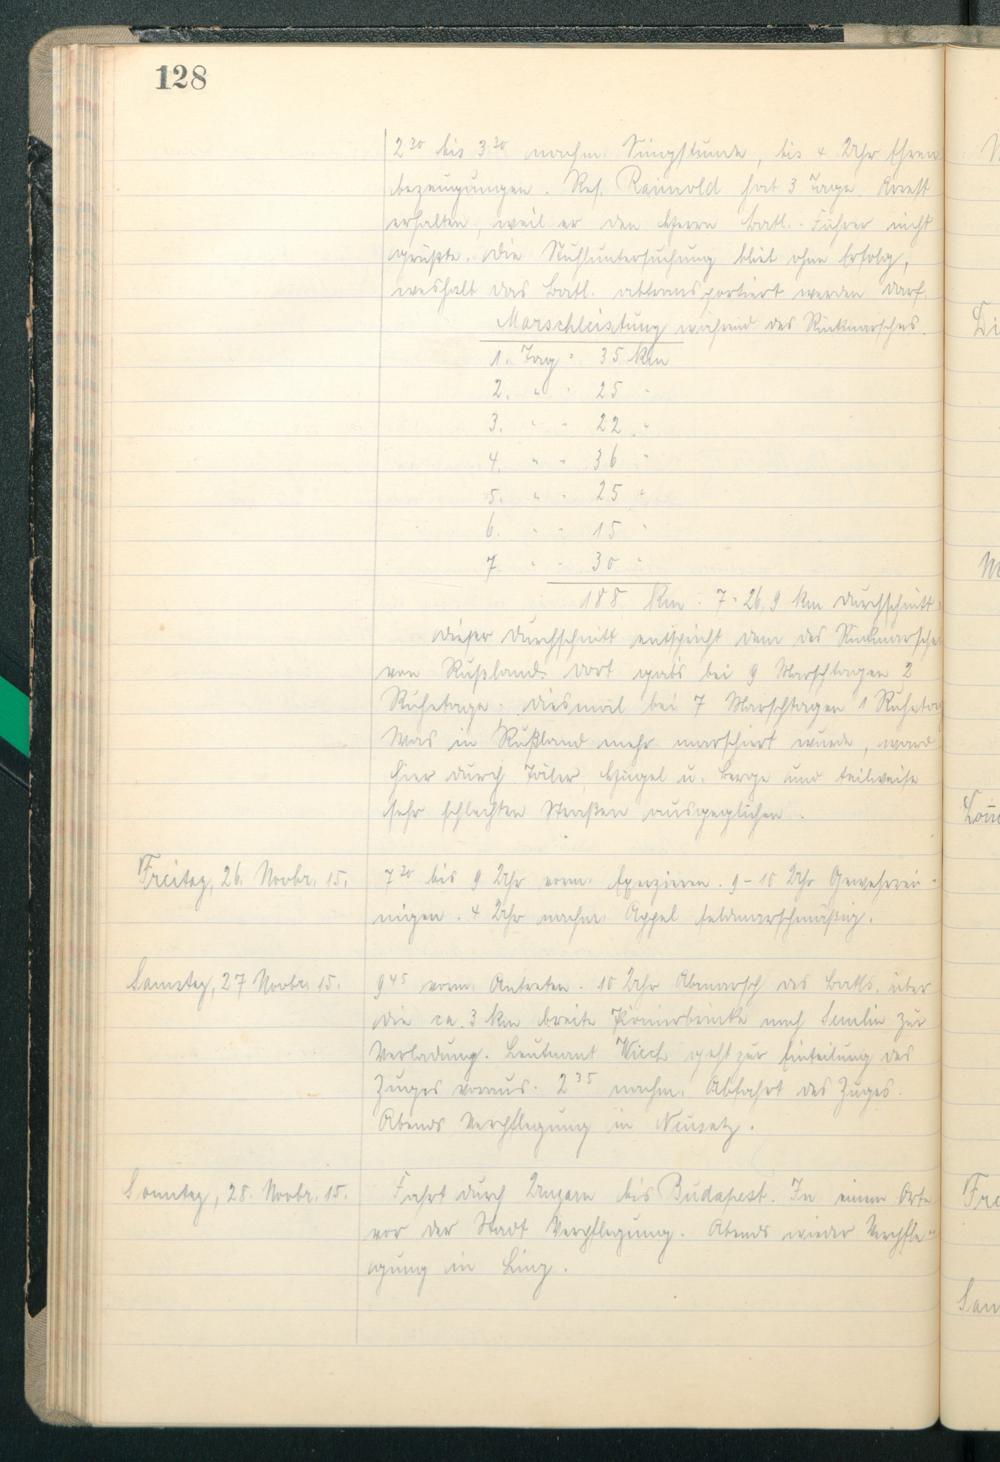 128
2³⁰ bis 3³⁰ nachm. Singstunde, bis 4 Uhr Ehren
bezeugungen. Res. Rainold hat 3 Tage Arrest
erhalten, weil er den Herrn Batl.-Führer nicht
grüßte. Die Stuhluntersuchung blieb ohne Erfolg,
weshalb das Batl. abtransportiert werden darf.
Marschleistung während des Rückmarsches.
1. Tag : 35 km
2. " " 25 "
3. " " 22 "
4. " " 36 "
5. " " 25 "
6. " " 15 "
7. " " 30 "
188 km : 7 = 26,9 km Durchschnitt.
Dieser Durchschnitt entspricht dem des Rückmarsche
von Rußland. Dort gab's bei 9 Marschtagen 2
Ruhetage. Diesmal bei 7 Marschtagen 1 Ruhetag
Was in Rußland mehr marschiert wurde, ward
hier durch Täler, Hügel u. Berge und teilweise
sehr schlechten Straßen ausgeglichen.
Freitag, 26. Novbr. 15. 7³⁰ bis 9 Uhr vorm. Exerzieren. 9-10 Uhr Gewehrrei-
nigen. 4 Uhr nachm. Appel feldmarschmäßig.
Samstag, 27 Novbr. 15. 9⁴⁵ vorm. Antreten. 10 Uhr Abmarsch des Batls. über
die ca. 3 km breite Pionierbrücke nach Semlin zur
Verladung. Leutnant geht zur Einteilung des
Zuges voraus. 2³⁵ nachm. Abfahrt des Zuges.
Abends Verpflegung in Neusatz.
Sonntag, 28. Novbr. 15. Fahrt durch Ungarn bis Budapest. In einem Orte
vor der Stadt Verpflegung. Abends wieder Verpfle-
gung in Linz.